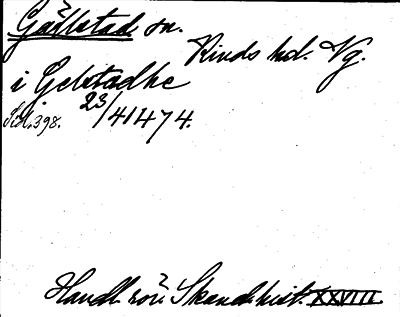 Gällstad sn.
Kinds hd. Vg.
i Gelstadhe
Sid. 398. 23/4 1474.
Handl. rör. Skand. hist. XXVIII